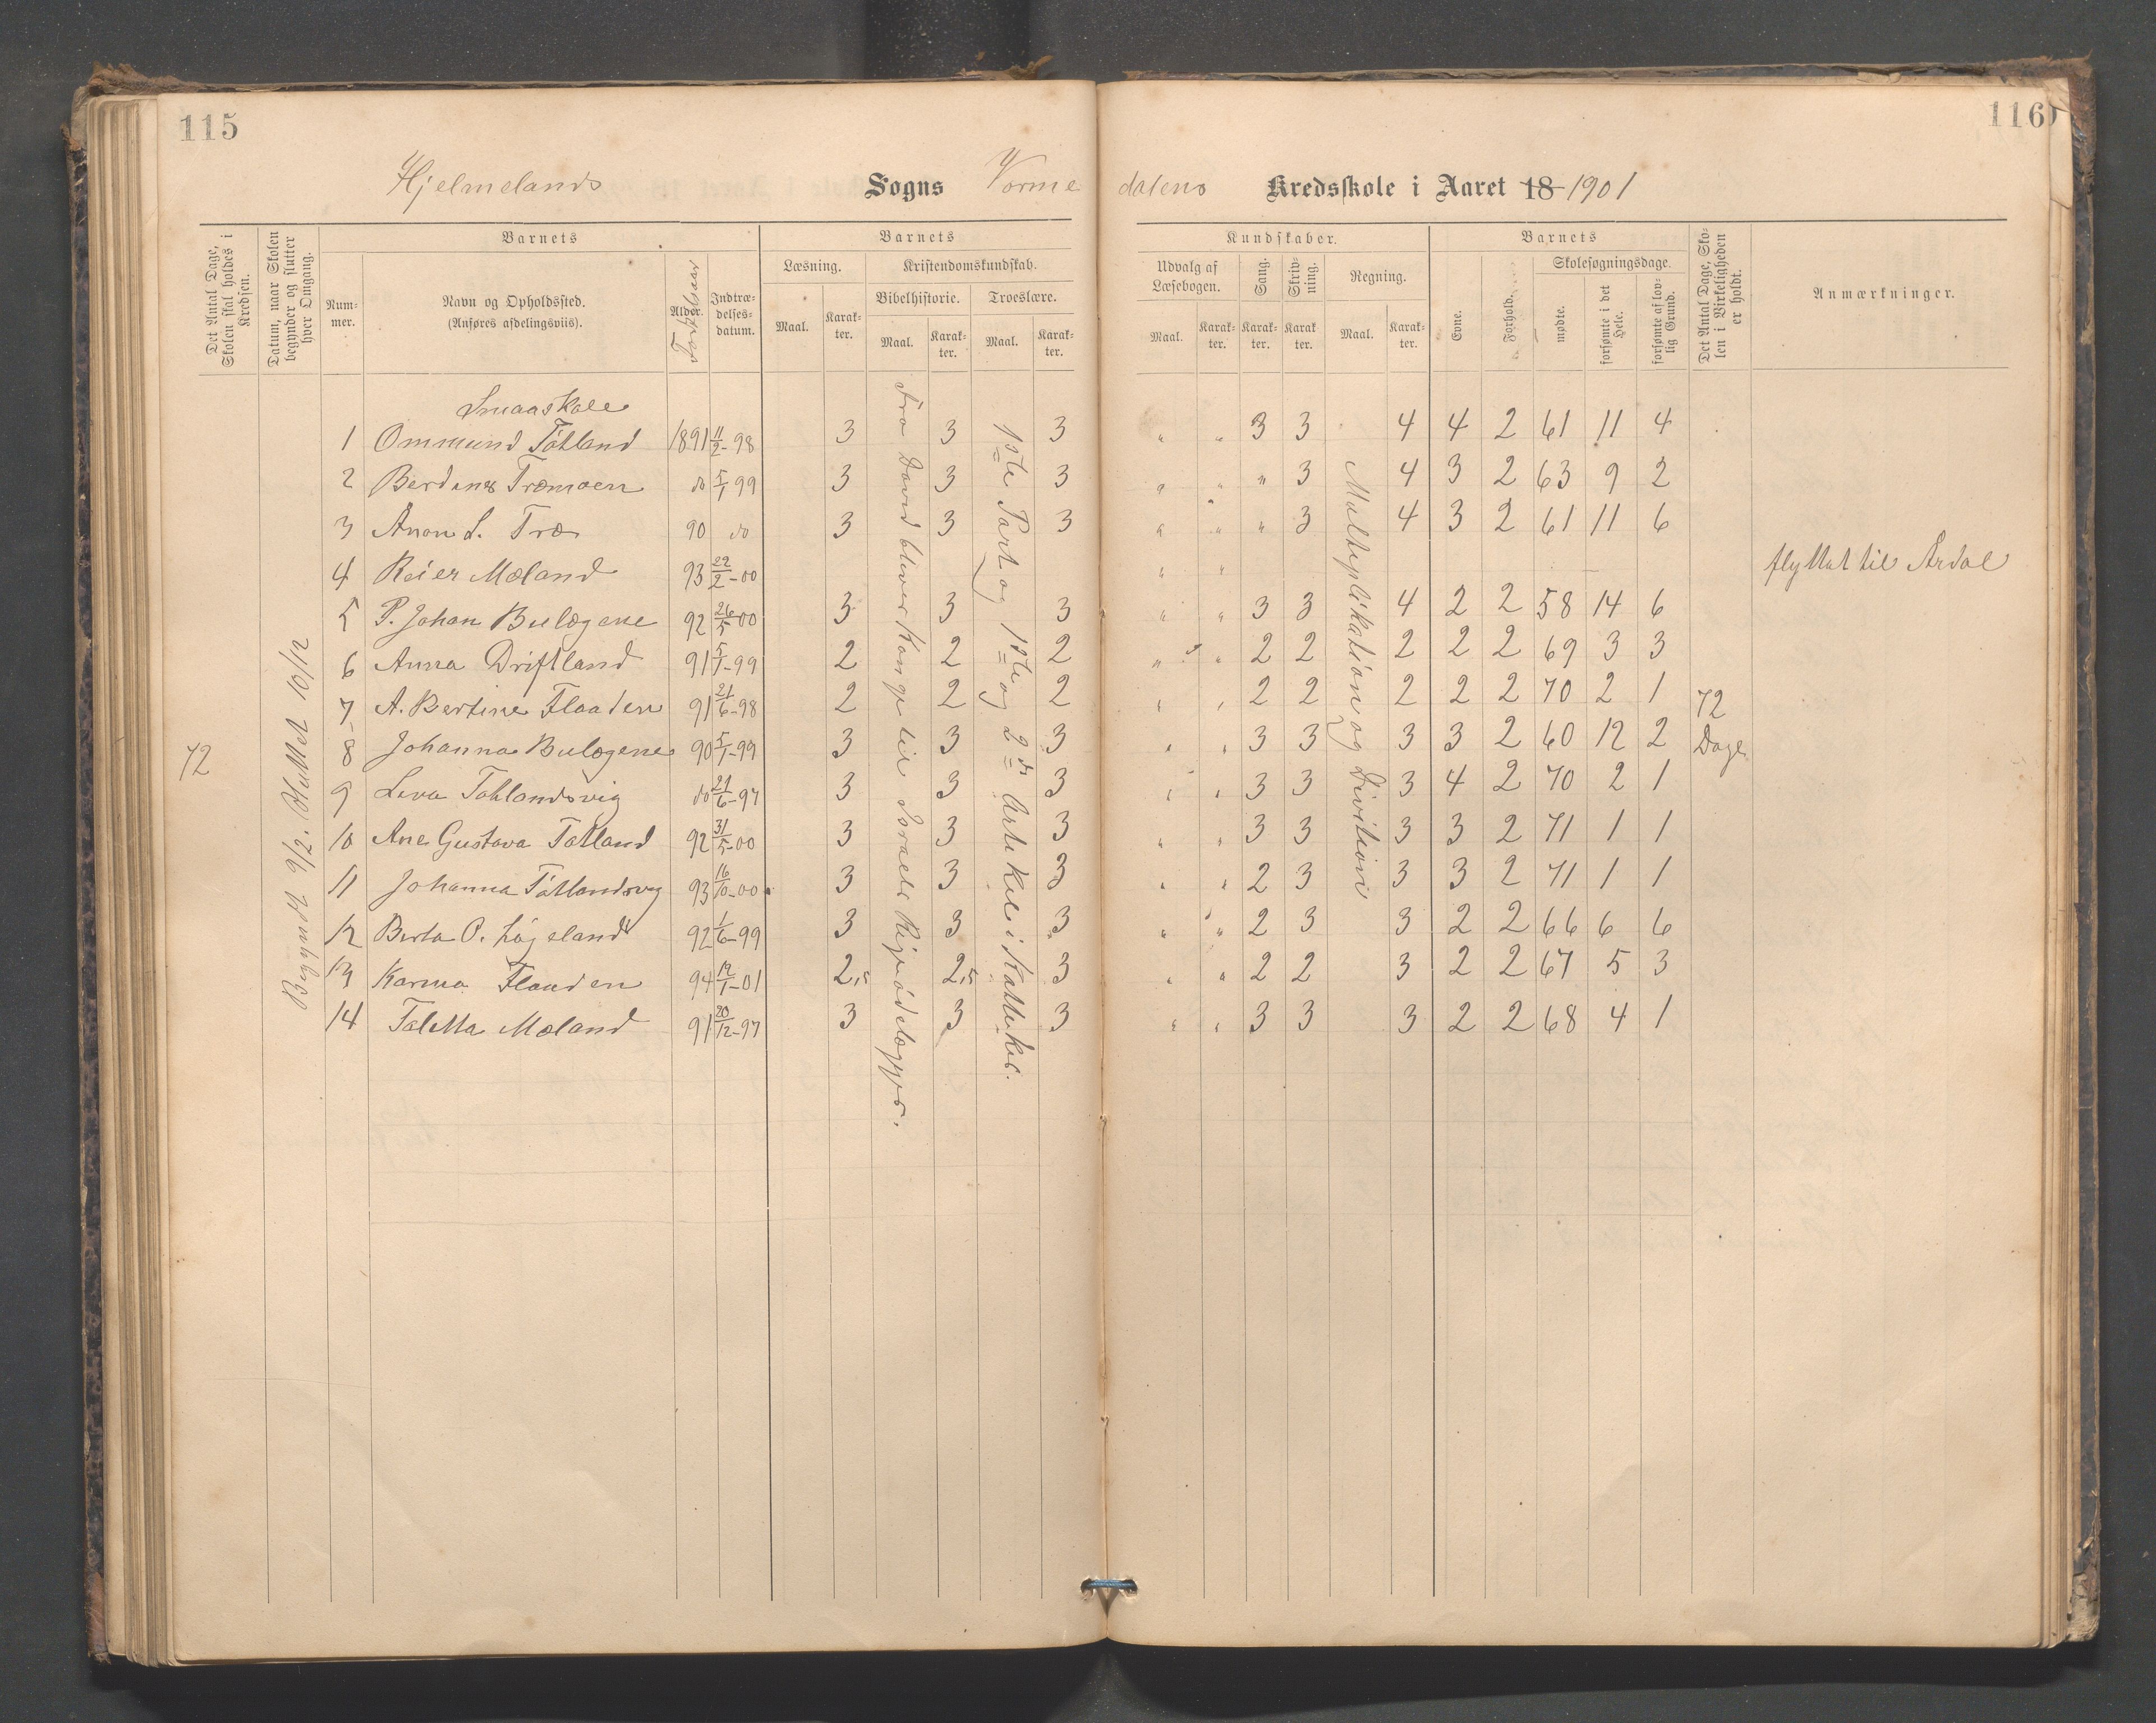 115
116
Hjelmelands Sogns Vorme dalens Kredsskole i Aaret 18 1901
Det Antal Dage, Skolen skal holdes i Kredsen.
Datum, naar Skolen begynder og slutter hver Omgang.
Barnets
Nummer.
Navn og Opholdssted.
(Anføres afdelingsviis).
Alder.
Fødselsaar
Indtrædelsesdatum.
Barnets
Læsning.
Maal.
Karakter.
Kristendomskundskab.
Bibelhistorie.
Maal.
Karakter.
Troeslære.
Maal.
Karakter.
Kundskaber.
Udvalg af Læsebogen.
Maal.
Karakter.
Sang.
Karakter.
Skrivning.
Karakter.
Regning.
Maal.
Karakter.
Barnets
Evne.
Forhold.
Skolesøgningsdage.
mødte.
forsømte i det Hele.
forsømte af lovlig Grund.
Det Antal Dage, Skolen i Virkeligheden er holdt.
Anmærkninger.
Smaaskole
1 Ommund Tøtland 1891 11/2-98 3 3 3 " " 3 3 4 4 2 61 11 4
2 Berdines Træmoen do 5/1 99 3 3 3 " " " 3 4 3 2 63 9 2
3 Anon L. Træ 90 do 3 3 3 " " " 3 4 3 2 61 11 6
4 Reier Mæland 93 22/2-00 " " flyttet til Årdal
5 P. Johan Bulægene 92 26/5-00 3 3 3 " " 3 3 4 2 2 58 14 6
6 Anna Driftland 91 5/1-99 2 2 2 " " 2 2 2 2 2 69 3 3
7 A. Bertine Flaaten 91 21/6-98 2 2 2 " " 2 2 2 2 2 70 2 1
8 Johanna Bulægene 90 5/1-99 3 3 3 " " 3 3 3 3 2 60 12 2
9 Lena Tøtlandsvig do 21/6-97 3 3 3 " " 3 3 3 4 2 70 2 1
10 Ane Gustava Tøtland 92 31/5-00 3 3 3 " " 3 3 3 3 2 71 1 1
11 Johanna Tøtlandsvig 93 16/10-00 3 3 3 " " 2 3 3 3 2 71 1 1
12 Berta O. Løgeland 92 1/6-99 3 3 3 " " 2 3 3 2 2 66 6 6
13 Karina Flaaden 94 12/1-01 2,5 2,5 3 " " 2 2 3 2 2 67 5 3
14 Taletta Mæland 91 20/12-97 3 3 3 " " 3 3 3 2 2 68 4 1
72
Begyndt 9/2. Sluttet 10/12
Fra David bliver Konge til Israels Rige ødelægges.
1ste Part og 1ste og 2den Artikel i Kattekis.
Multiplikation og Divition
72 Dage